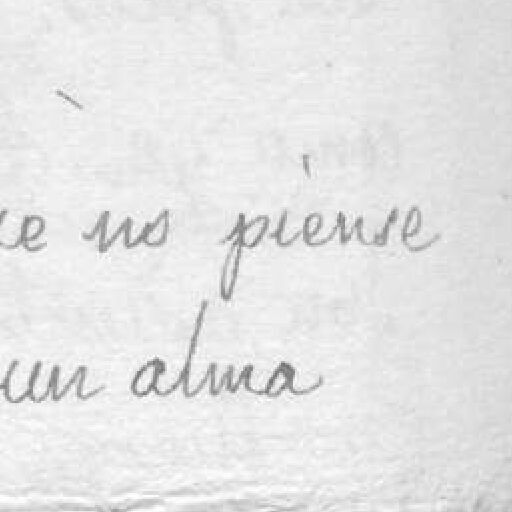 no piense
un alma